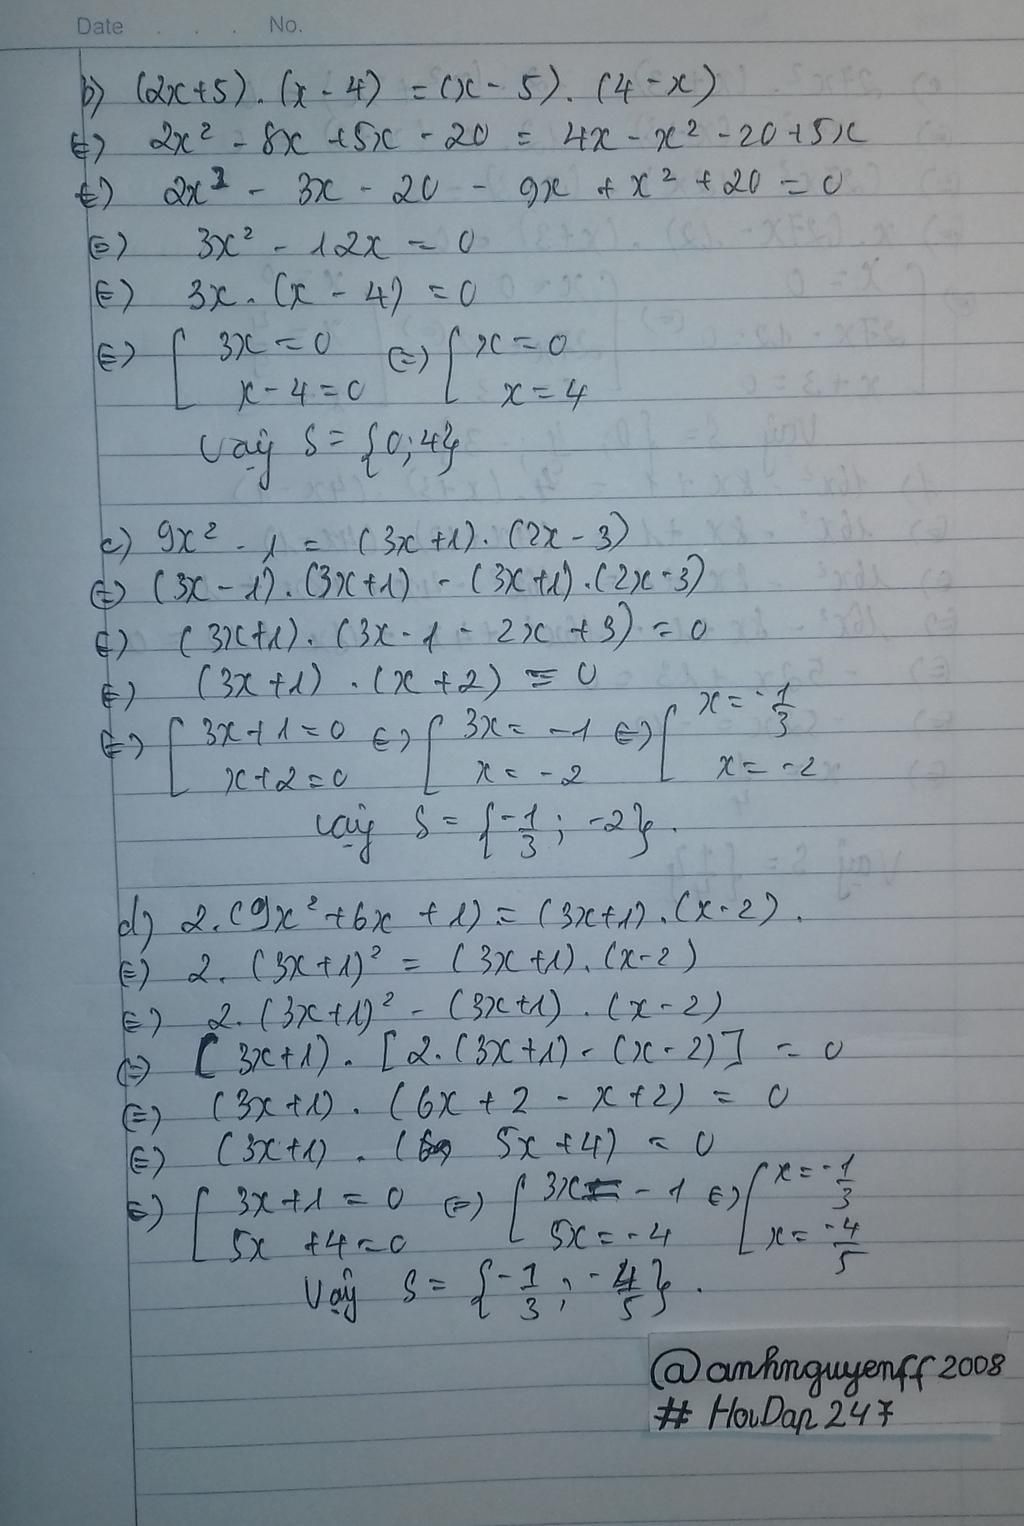 Date . . . No.
b) (2x+5).(x-4) = (x-5).(4-x)
⇔) 2x² - 8x + 5x - 20 = 4x - x² - 20 + 5x
⇔) 2x² - 3x - 20 - 9x + x² + 20 = 0
⇔) 3x² - 12x = 0
⇔) 3x.(x-4) = 0
⇔) [ 3x = 0 ⇔) [ x = 0
x - 4 = 0 x = 4
Vậy S = {0; 4}
c) 9x² - 1 = (3x+1).(2x-3)
⇔) (3x-1).(3x+1) - (3x+1).(2x-3)
⇔) (3x+1).(3x-1-2x+3) = 0
⇔) (3x+1).(x+2) = 0
⇔) [ 3x+1=0 ⇔) [ 3x = -1 ⇔) [ x = -1/3
x+2=0 x = -2 x = -2
Vậy S = {-1/3; -2}.
d) 2.(9x²+6x+1) = (3x+1).(x-2).
⇔) 2.(3x+1)² = (3x+1).(x-2)
⇔) 2.(3x+1)² - (3x+1).(x-2)
⇔) (3x+1).[2.(3x+1)-(x-2)] = 0
⇔) (3x+1).(6x+2-x+2) = 0
⇔) (3x+1).( 5x+4) = 0
⇔) [ 3x+1 = 0 ⇔) [ 3x = -1 ⇔) [ x = -1/3
5x+4=0 5x = -4 x = -4/5
Vậy S = {-1/3; -4/5}.
@anhnguyenff2008
# HoiDap247